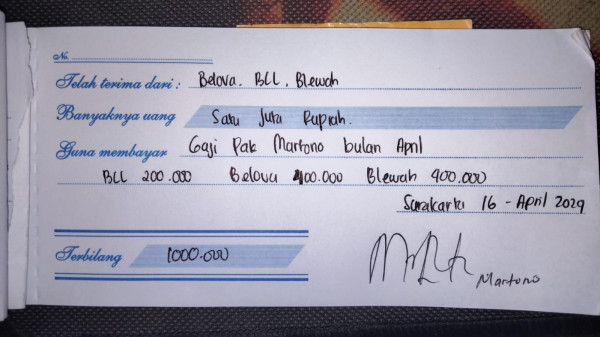 No.
Telah terima dari : Belova, BLL, Blewah
Banyaknya uang Satu Juta Rupiah.
Guna membayar Gaji Pak Martono bulan April
BLL 200.000 Belova 400.000 Blewah 400.000
Surakarta 16 - April 2029
Terbilang 1000.000
Martono